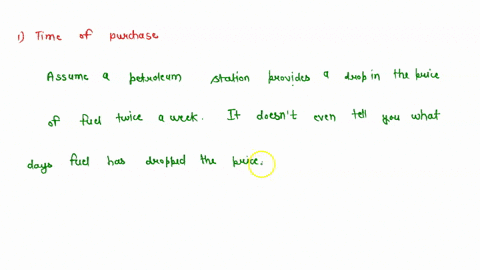 1) Time of purchase
Assume a petroleum station provides a drop in the price
of fuel twice a week. It doesn't even tell you what
days fuel has dropped the price.